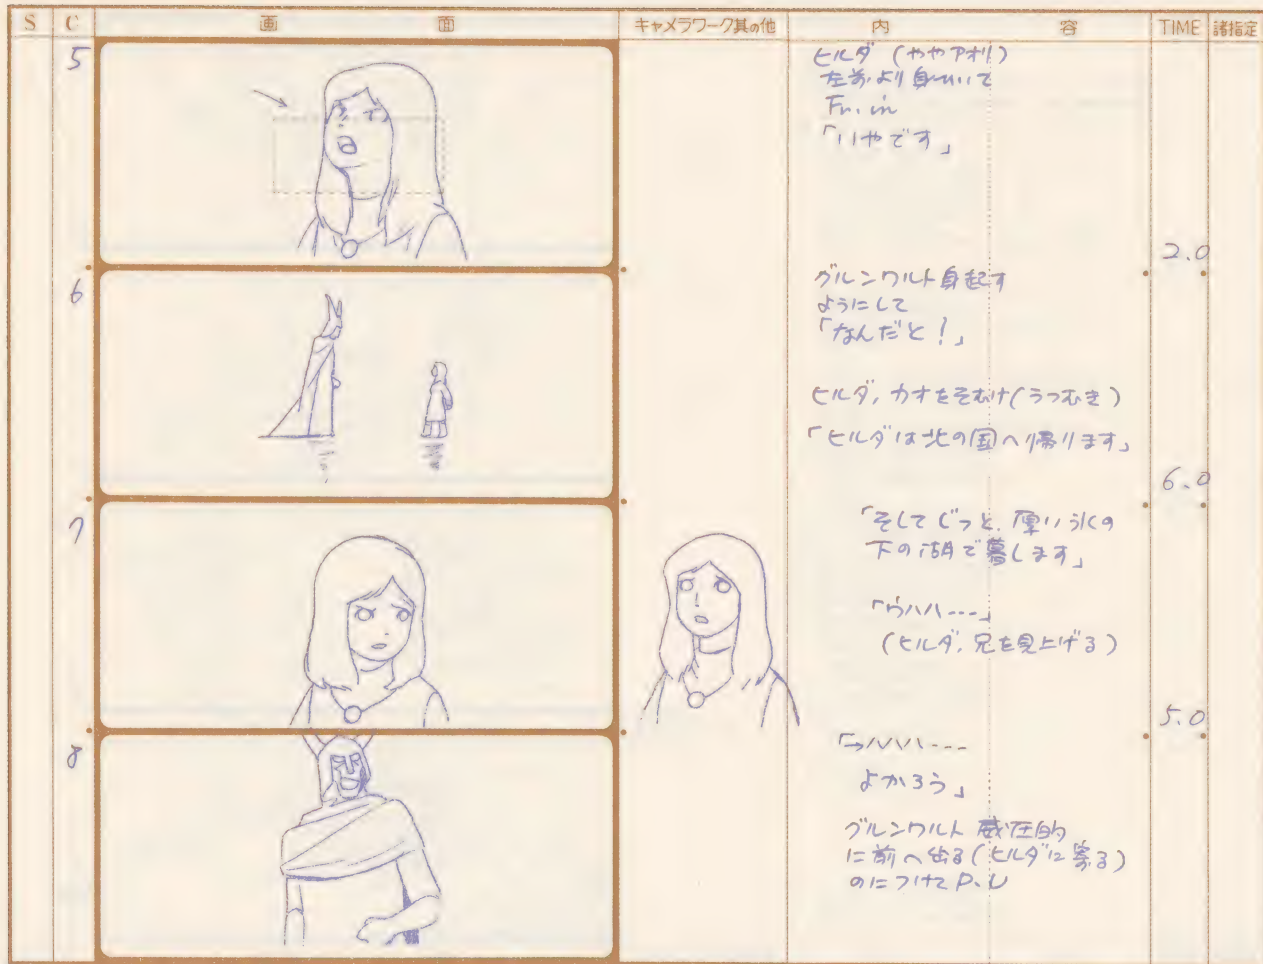 S C 画 面 キャメラワーク其の他 内 容 TIME 諸指定
5
ヒルダ (ややアオリ)
左前より身ひいて
Fr. in
「いやです」
2.0
6
グルンワルト身起す
ようにして
「なんだと!」
ヒルダ, カオをそむけ(うつむき)
「ヒルダは北の国へ帰ります」
6.0
7
「そしてじっと、厚い氷の
下の湖で暮します」
「ウハハ---」
(ヒルダ, 兄を見上げる)
5.0
8
「ウハハハ---
よかろう」
グルンワルト 威圧的
に前へ出る(ヒルダに寄る)
のにつけてP.U